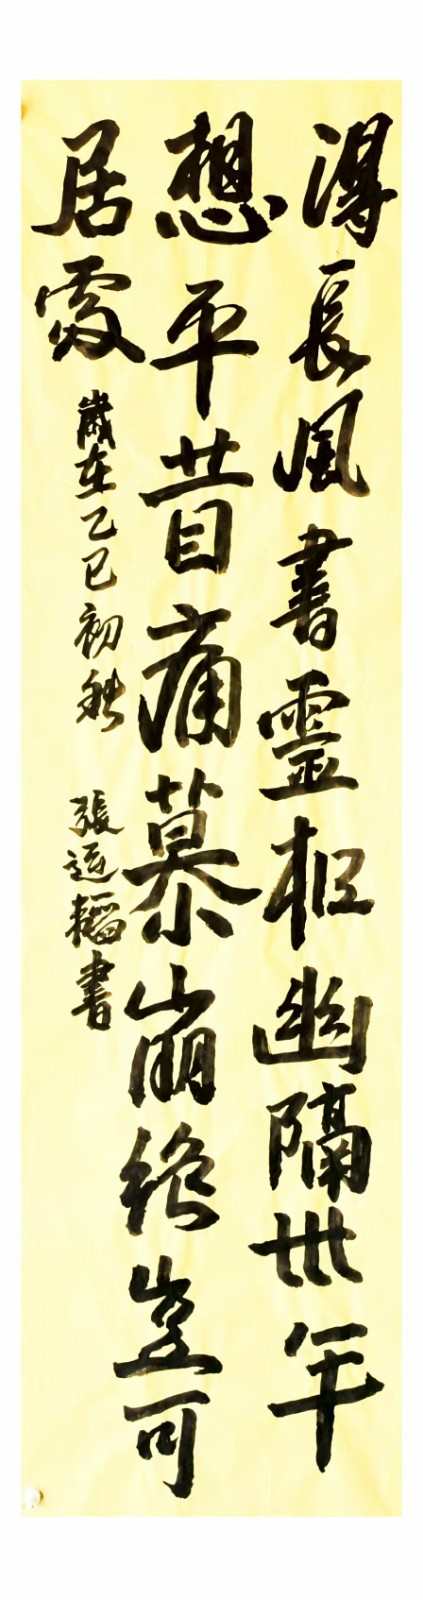 得長風書靈柩幽隔卅年
想平昔痛慕崩絕豈可
居處 歲在乙巳初秋 張韜書